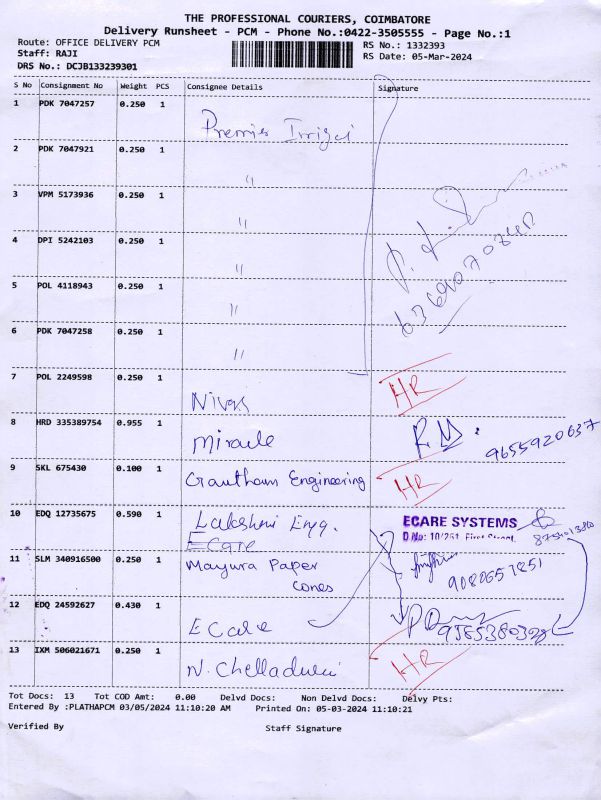 THE PROFESSIONAL COURIERS, COIMBATORE
Delivery Runsheet - PCM - Phone No.:0422-3505555 - Page No.:1
Route: OFFICE DELIVERY PCM RS No.: 1332393
Staff: RAJI RS Date: 05-Mar-2024
DRS No.: DCJB133239301
S No Consignment No Weight PCS Consignee Details Signature
1 PDK 7047257 0.250 1
Premier
2 PDK 7047921 0.250 1
"
3 VPM 5173936 0.250 1
"
4 DPI 5242103 0.250 1
"
5 POL 4118943 0.250 1
"
6 PDK 7047258 0.250 1
"
7 POL 2249598 0.250 1
Nivas HR
8 HRD 335389754 0.955 1
miracle 9655920637
9 SKL 675430 0.100 1
Gautham Engineering HR
10 EDQ 12735675 0.590 1
Lakshmi Eng. ECARE SYSTEMS
Ecare D.No: 10/251, First Street,
11 SLM 340916500 0.250 1
Mayura Paper
cones 9080657851
12 EDQ 24592627 0.430 1
Ecare
13 IXM 506021671 0.250 1
N. Chelladurai HR
Tot Docs: 13 Tot COD Amt: 0.00 Delvd Docs: Non Delvd Docs: Delvy Pts:
Entered By :PLATHAPCM 03/05/2024 11:10:20 AM Printed On: 05-03-2024 11:10:21
Verified By Staff Signature